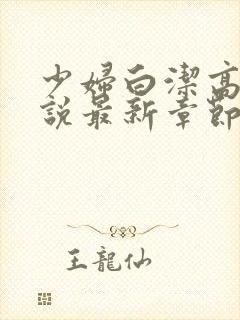 少婦白潔高
說最新章節
王龍仙